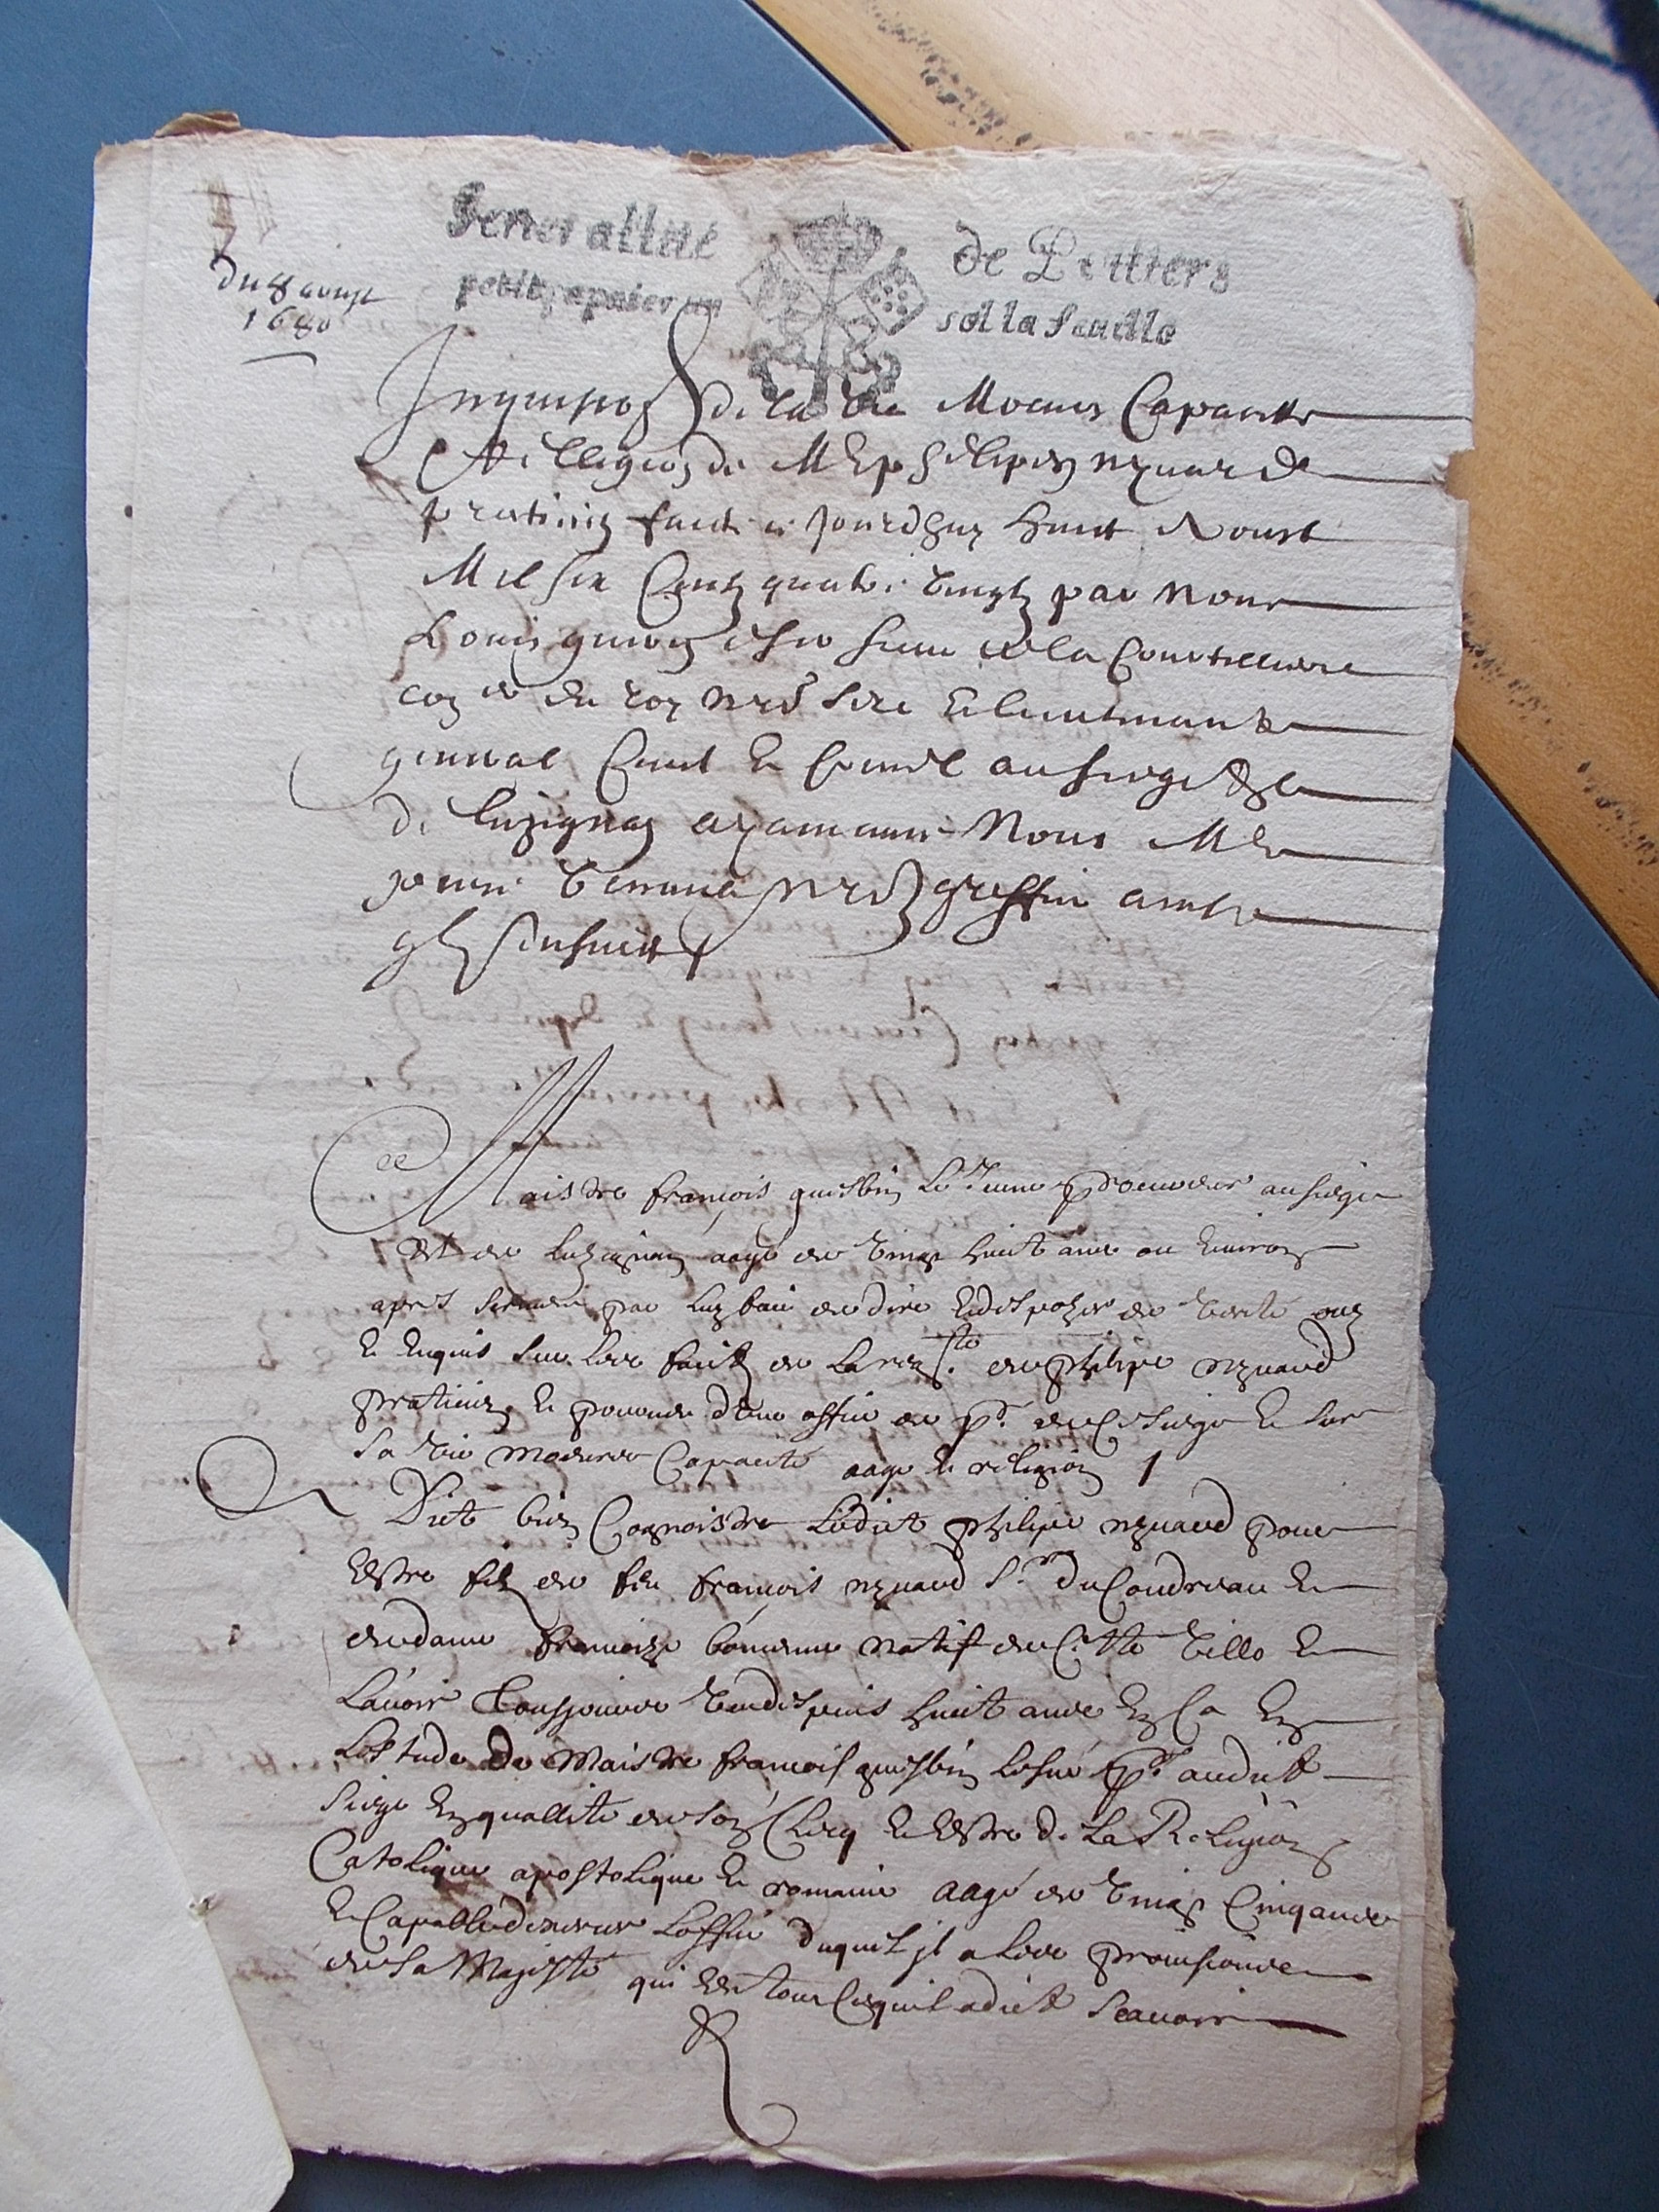 Generallité de Poittiers
petit papier un sol la feuille
du 8 aoust
1680
Inquisi͠on de la vie Moeurs Capacitte
Et Religion de Me philipes nynard
praticien faict ce jourdhuy huict Aoust
Mil six Centz quatre vingtz par nous
Louis escr sieur de la Courtilliere
con er du roy nre Sire Et lieutenant
general Civil Et Criminel au siege
de Luzignan ayant avec Nous Me
nre greffier
Maistre françois quisbin Le Jeune procureur au siege
de Luzignan aagé de vingt huict ans ou environ
apres serment par luy faict de dire Et depozer de verité ouy
Et Enquis sur Les faictz de La req.te de philipe nynaud
praticien Et pourveu d'un office de pr. de Ce Siege Et sur
sa vie moeurs Capacité aage Et religion /
Dict bien Cognoistre Ledict philipe nynaud pour
Estre filz de feu françois nynaud Sr. du Coudreau Et
de dame françoize natif de Cette Ville Et
Lavoir tousjours veu depuis huict ans En Ca En
Lestude De Maistre françois quisbin Lesné pr. audict
Siege En quallité de son Clerq Et Estre de La Religion
Catolique apostolique Et romaine aagé de vingt Cinq ans
Et Capable dexercer Loffice duquel jl a Les provisions
de sa Majesté qui Est tout Ce quil a dict Scavoir